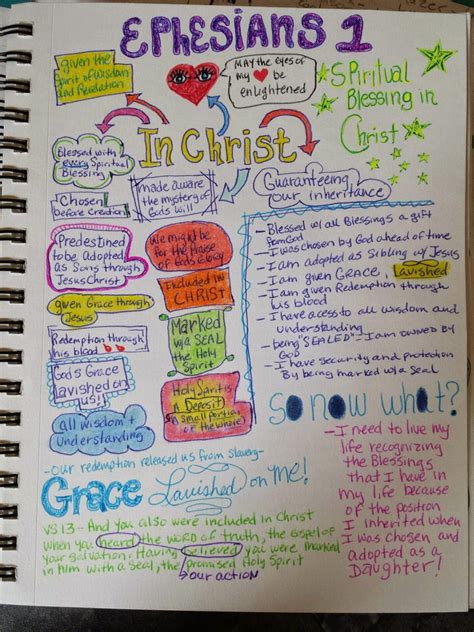 EPHESIANS 1
given the
Spirit of Wisdom
and Revelation
MAY THE EYES OF
my be
enlightened
SPiritual
Blessing in
Christ
In CHRIST
Blessed with
every Spiritual
Blessing
made aware
the mystery of
Gods will
Guaranteeing
our inheritance
Chosen
before Creation
Predestined
to be Adopted
as Sons through
Jesus Christ
We might be
for the Praise
of Gods Glory
INCluded IN
CHRIST
given Grace through
Jesus
Marked
w/a SEAL
the Holy
Spirit
Redemption through
his blood
God's Grace
Lavished on
us!
Holy Spirit is
A Deposit
(a small portion
of the whole)
all wisdom +
Understanding
- Blessed w/all Blessings a gift
from God
- I was chosen by God ahead of time
- I am adopted as Sibling w/ Jesus
- I am given GRACE, Lavished
- I am given Redemption through
his blood
- I have access to all wisdom and
understanding
- being "SEALED" - I am owned by
GOD
- I have security and protection
By being marked w/a Seal
SO NOW what?
- I need to live my
life recognizing
the Blessings
that I have in
my life because
of the position
I inherited when
I was chosen and
adopted as a
Daughter!
- Our redemption released us from Slavery-
Grace Lavished on ME!
VS 13 - And you also were included in Christ
when you heard the word of truth, the gospel of
your salvation. Having believed you were marked
in him with a Seal, the promised Holy Spirit
our action